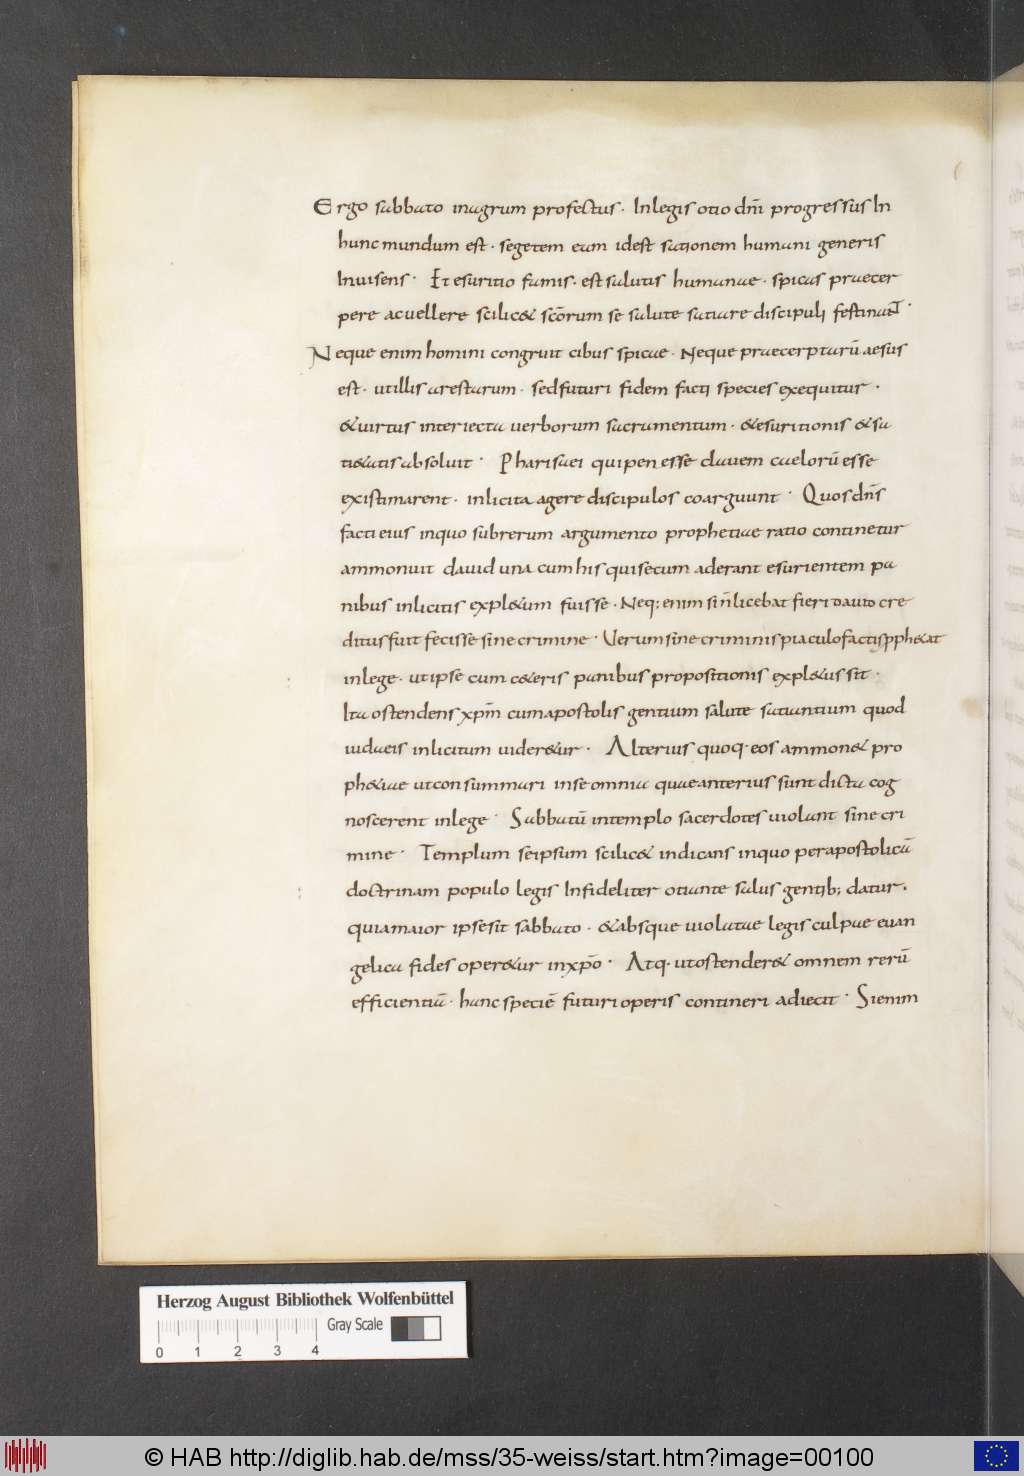 Ergo sabbato inagrum profectus· Inlegis otio dnı̄ progressus In
hunc mundum est· segetem eam idest sationem humani generis
Inuisens· Et esuritio famis· est salutis humanae· spicas praecer
pere ac uellere scilic& scōrum se salute satiare discipuli festinaNT·
Neque enim homini congruit cibus spicae· Neque praecerptarū aesus
est· utillis arestarum· sed futuri fidem facti species exequitur·
&uirtus interiecta uerborum sacramentum· &esuritionis &sa
ti&atis absoluit· Pharisaei qui pen esse clauem caelorū esse
existimarent· inlicita agere discipulos coarguunt· Quos dn̄s
facti eius inquo subrerum argumento prophetiae ratio continetur
ammonuit dauid una cum his qui secum aderant esurientem pa
nibus inlicitis expl&um fuisse· Neq; enim sin̄ licebat fieri dauid cre
ditus fuit fecisse sine crimine· Uerum sine criminis piaculo factis pph&at
inlege· ut ipse cum c&eris panibus propositionis expl&us sit·
Ita ostendens xpm̄ cum apostolis gentium salute satiantium quod
iudaeis inlicitum uider&ur· Alterius quoq· eos ammon& pro
ph&iae ut consummari inse omnia quae anterius sunt dicta cog
noscerent inlege· Sabbatū intemplo sacerdotes uiolant sine cri
mine· Templum seipsum scilic& indicans inquo per apostolicā
doctrinam populo legis Infideliter otiante salus gentib; datur·
quia maior ipse sit sabbato· &absque uiolatae legis culpae euan
gelica fides oper&ur inxp̄o· Atq· ut ostender& omnem rerū
efficientiā· hanc speciē futuri operis contineri adiecit· Si enim
Herzog August Bibliothek Wolfenbüttel
Gray Scale
0 1 2 3 4
© HAB http://diglib.hab.de/mss/35-weiss/start.htm?image=00100